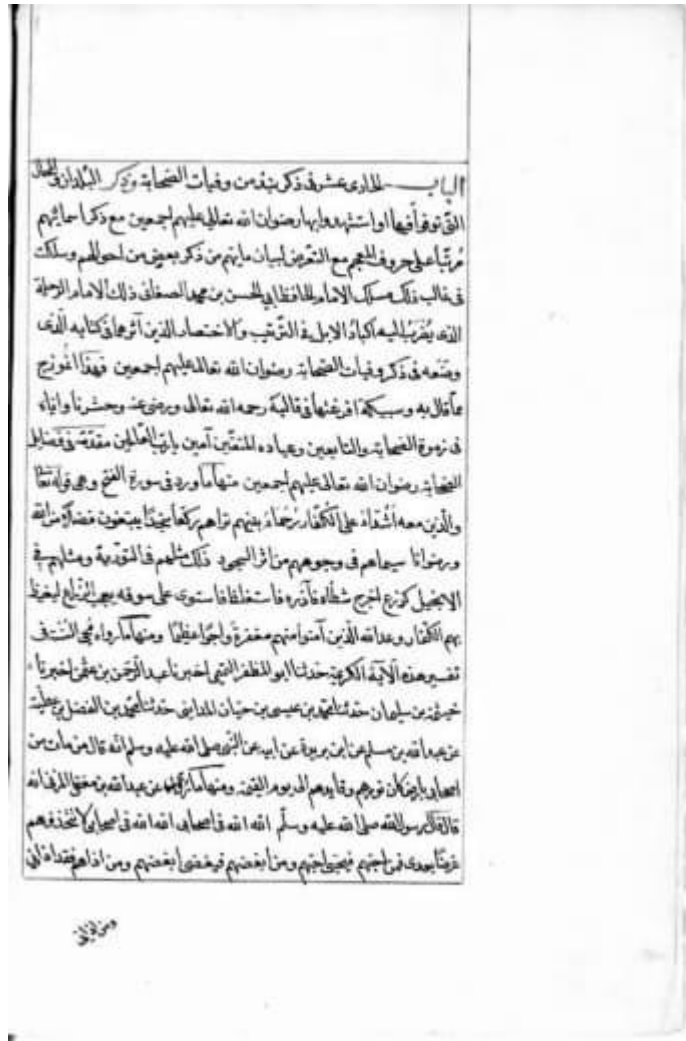 الباب الحادى عشر فى ذكر نبذ من وفيات الصحابة وذكر البلدان والمحال
التى توفوا فيها او استشهدوا بها رضوان الله تعالى عليهم اجمعين مع ذكر اسمائهم
مُرتّبا على حروف المعجم مع التعرض لبيان ما يهم من ذكر بعض من احوالهم وسلك
فى غالب ذلك مسلك الامام الحافظ ابى الحسن بن محمد الصغانى ذلك الامام الرحلة
الذى يُضرب اليه اكباد الابل فى الترتيب والاختصار الذين آثرهما فى كتابه الّذى
وضَعه فى ذكر وفيات الصحابة رضوان الله تعالى عليهم اجمعين فهذا انموزج
مما قال به وسبيكة افرغتها فى قالبه رحمه الله تعالى ورضى عنه وحشرنا واياه
فى زمرة الصحابة والتابعين وعباده المتقين آمين يا ربّ العالمين مقدّمة فى فضايل
الصحابة رضوان الله تعالى عليهم اجمعين منها ما ورد فى سورة الفتح وهى قوله تعالى
والّذين معه اَشدّاءُ على الكفّار رُحَماءُ بينهم تراهم ركّعا سجّدًا يبتغون فضلًا من الله
ورضوانا سيماهم فى وجوههم من اثر السجود ذلك مثلهم فى التوريةِ ومثلهم فى
الانجيل كزرع اخرج شطأه فآزره فاستغلظ فاستوى على سوقه يعجب الزّراع ليغيظ
بهم الكفّار وعد الله الّذين آمنوا منهم مغفرة واجرًا عظيمًا ومنها ما رواه محى السنّة فى
تفسير هذه الآية الكريمة حدثنا ابو المظفر التميمى اخبرنا عبد الرحمن بن عثمن اخبرنا
خيثمة بن سليمان حدثنا محمد بن عيسى بن حيان المداينى حدثنا محمد بن الفضل بن عطية
عن عبد الله بن مسلم عن ابن بريدة عن ابيه عن النبى صلى الله عليه وسلم انّه قال من مات من
اصحابى بارض كان نورهم وقايدهم الى يوم القيمة ومنها ما عن عبد الله بن مغفل المزنى انه
قال قال رسول الله صلى الله عليه وسلّم الله الله فى اصحابى الله الله فى اصحابى لا تتخذوهم
غرضًا بعدى فمن احبّهم فبحبّى احبّهم ومن ابغضهم فببغضى ابغضهم ومن اذاهم فقد اذانى
ومن اذانى